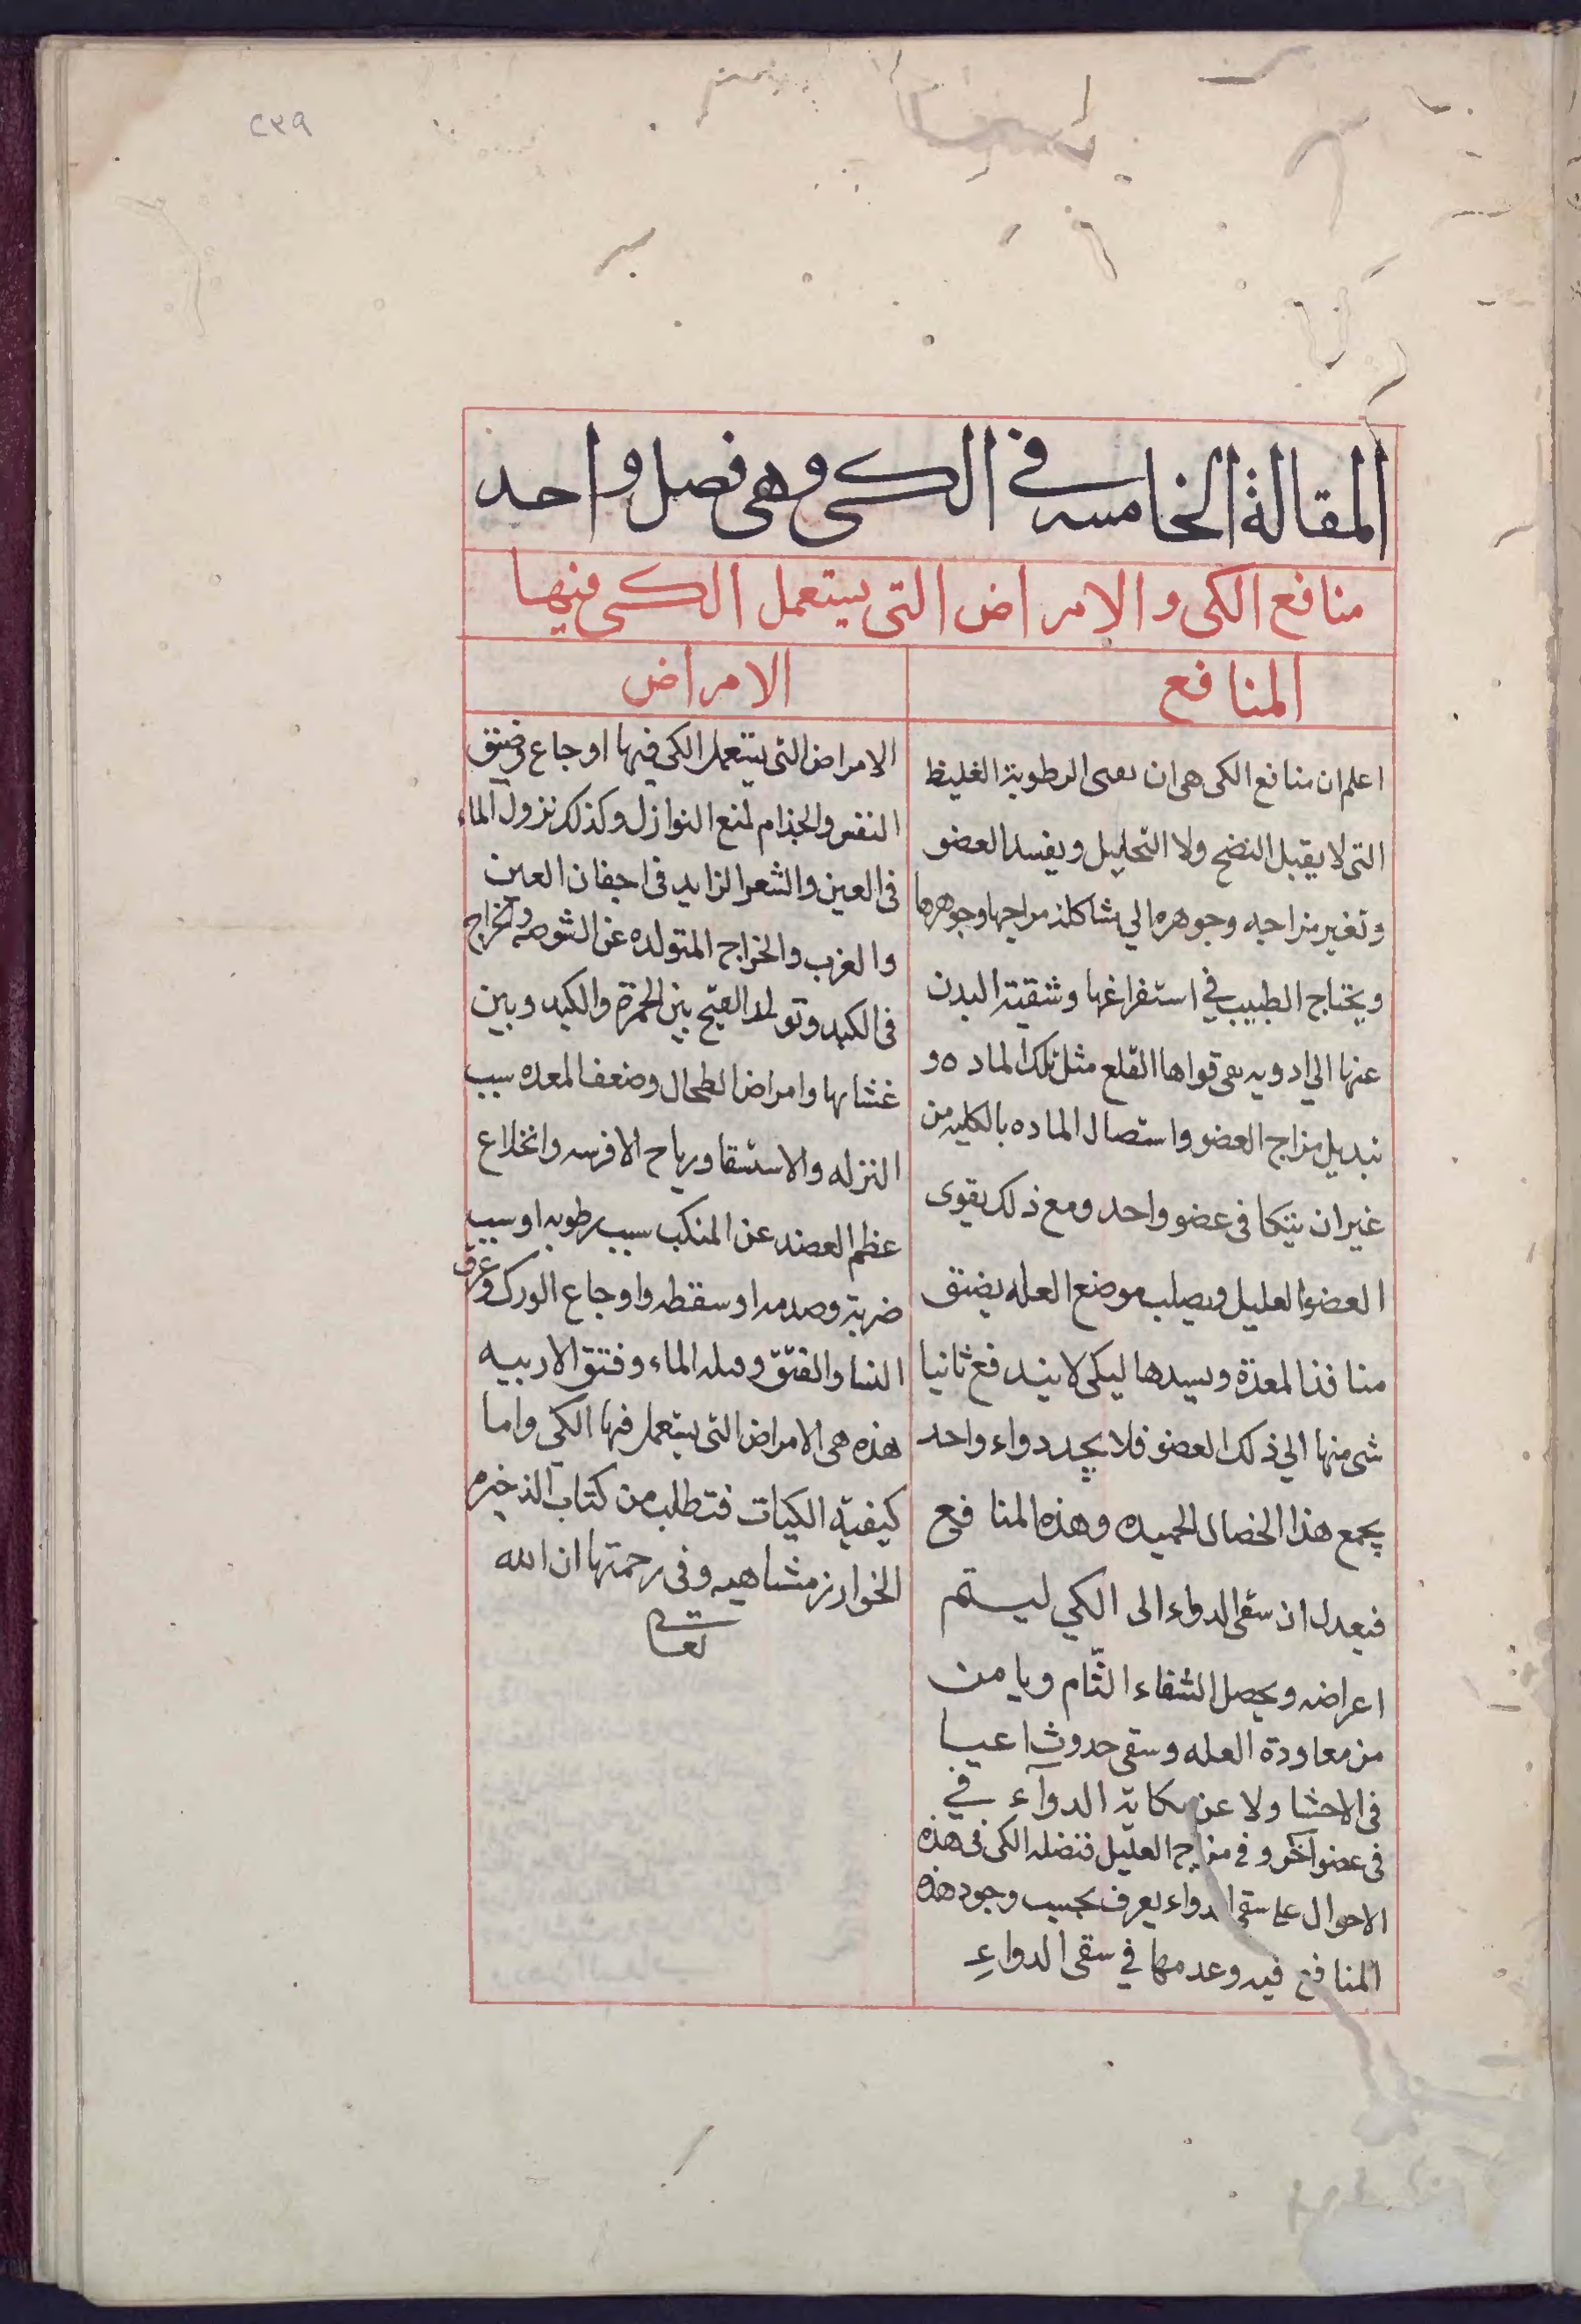 ٢٣٩
المقالة الخامسه في الكي وهى فصل واحد
منافع الكى والامراض التى يستعمل الكى فيها
المنافع
اعلم ان منافع الكى هى ان الرطوبة الغليظ
التى لا يقبل النضج ولا التحليل ويفسد العضو
وتغير مزاجه وجوهره الي مشاكلة مزاجها وجوهرها
ويحتاج الطبيب في استفراغها وتنقية البدن
عنها الي ادويه قواها القلع مثل تلك الماده و
تبديل مزاج العضو واستصال الماده بالكليه من
غير ان ينكا فى عضو واحد ومع ذلك يقوى
العضو العليل ويصلب موضع العله يضيق
منافذ المعدة ويسدها ليكى لا يندفع ثانيا
شى منها الي ذلك العضو فلا يجد دواء واحد
يجمع هذا الخصال الحميده وهذه المنافع
فيعدل ان سقى الدواء الى الكي ليستم
اعراضه ويحصل الشفاء التّام ويامن
من معاودة العله وسقى حدوث اعيا
فى الاحشا ولا عن نكاية الدوآء في
فى عضو آخر و في مزاج العليل فنضله الكى فى هذه
الاحوال على سقى الدواء يعرف بحسب وجود هذه
المنافع فيه وعدمها في سقى الدواءِ
الامراض
الامراض التى يستعمل الكى فيها اوجاع وضيق
النفس والجذام لمنع النوازل وكذلك نزول الماء
فى العين والشعر الزايد فى اجفان العين
والغرب والخراج المتولده عن الشوصه والخراج
فى الكبد وتولد القيح بين الحمرة والكبد وبين
غشايها وامراض الطحال وضعف المعده سبب
النزله والاستسقا ورياح الافرسه وانخلاع
عظم العضد عن المنكب سبب رطوبه او سبب
ضربة وصدمه او سقطه واوجاع الورك وعرق
النسا والفتق وقيله الماء وفتق الاربيه
هذه هى الامراض التى يستعمل فيها الكي واما
كيفية الكيات فتطلب من كتاب الذخيره
الخوارزمشاهيه وفى رحمتها ان الله
تعالى